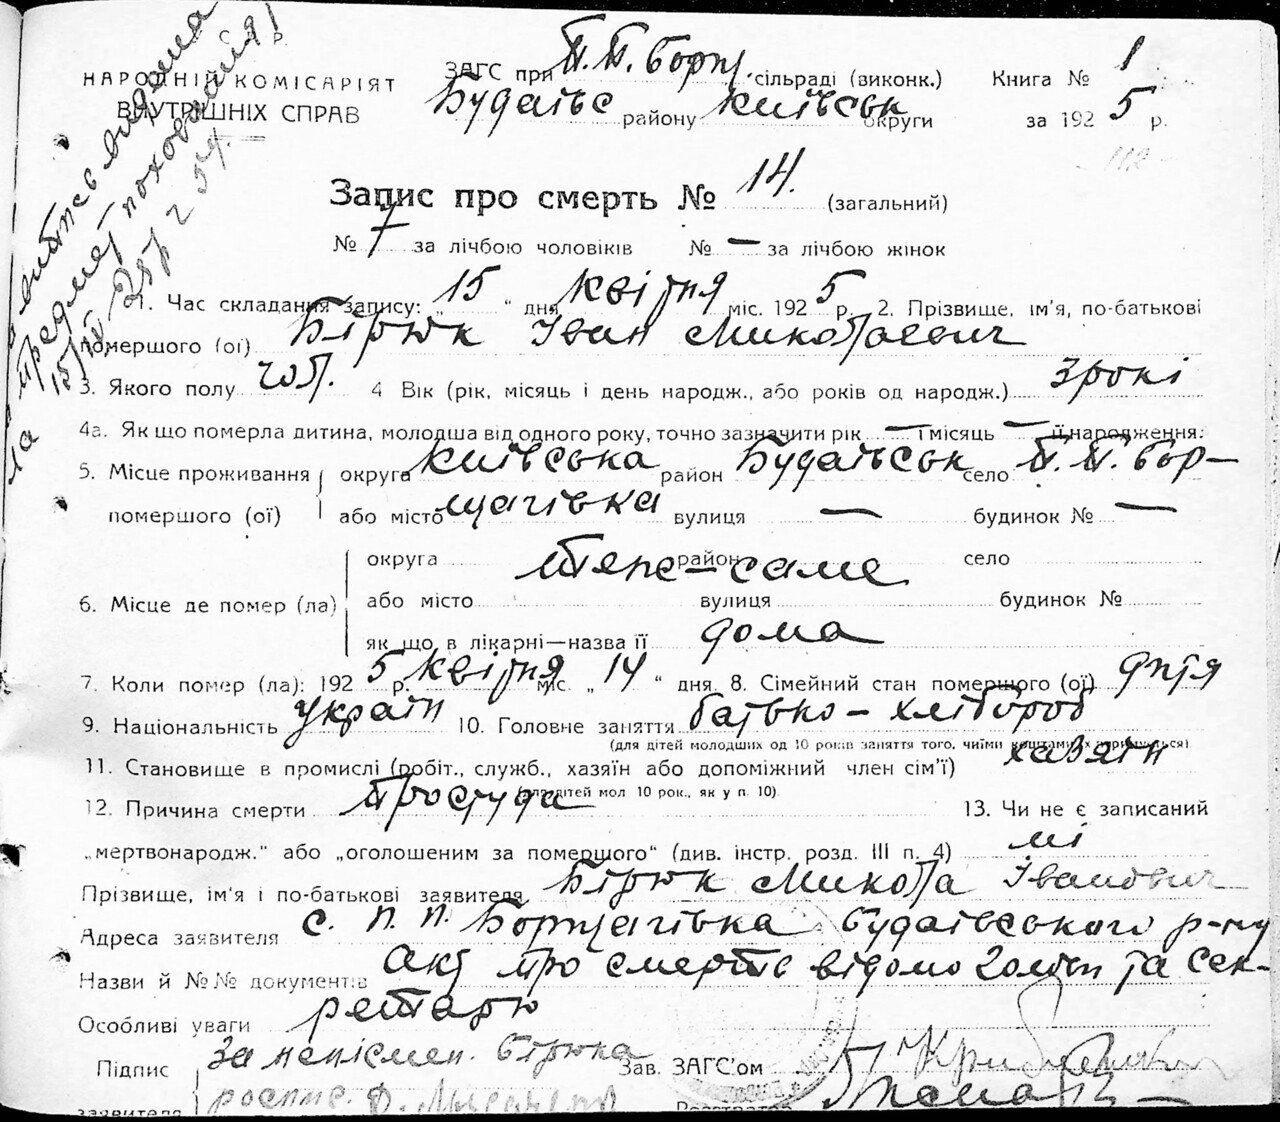 С Р Р
НАРОДНІЙ КОМІСАРІЯТ
ВНУТРІШНІХ СПРАВ
ЗАГС при П. П. Борщ. сільраді (виконк.)
Будаївс району Київськ округи
Книга № 1
за 1925 р.
112
Запис про смерть № 14. (загальний)
№ 7 за лічбою чоловіків № — за лічбою жінок
1. Час складання запису: „ 15 “ дня квітня міс. 1925 р. 2. Прізвище, ім'я, по-батькові
помершого (ої) Бірюк Іван Миколаевич
3. Якого полу чол. 4 Вік (рік, місяць і день народж., або років од народж.) 3 рокі
4а. Як що померла дитина, молодша від одного року, точно зазначити рік — і місяць — її народження:
5. Місце проживання помершого (ої) округа Київська район Будаївськ село П. П. Бор–
або місто щагівка вулиця — будинок № —
6. Місце де помер (ла) округа район село
Теже – саме
або місто вулиця будинок №
як що в лікарні—назва її дома
7. Коли помер (ла): 1925 р. квітня міс. „ 14 “ дня. 8. Сімейний стан помершого (ої) дитя
9. Національність україн 10. Головне заняття батько – хлібороб
(для дітей молодших од 10 років заняття того, чиїми коштами їх утримується)
11. Становище в промислі (робіт., служб., хазяїн або допоміжний член сім'ї) хазяїн
(для дітей мол. 10 рок., як у п. 10)
12. Причина смерти Простуда 13. Чи не є записаний
„мертвонародж.“ або „оголошеним за помершого“ (див. інстр. розд. III п. 4) ні
Прізвище, ім'я і по-батькові заявителя Бірюк Микола Іванович
Адреса заявителя с. П. П. Борщагівка Будаївського р-ну
Назви й №№ документів Акт про смерть відомо голові та сек–
Особливі уваги ретарю
Підпис заявителя За неписмен. Бірюка
роспис.
Зав. ЗАГС'ом
Реєстратор